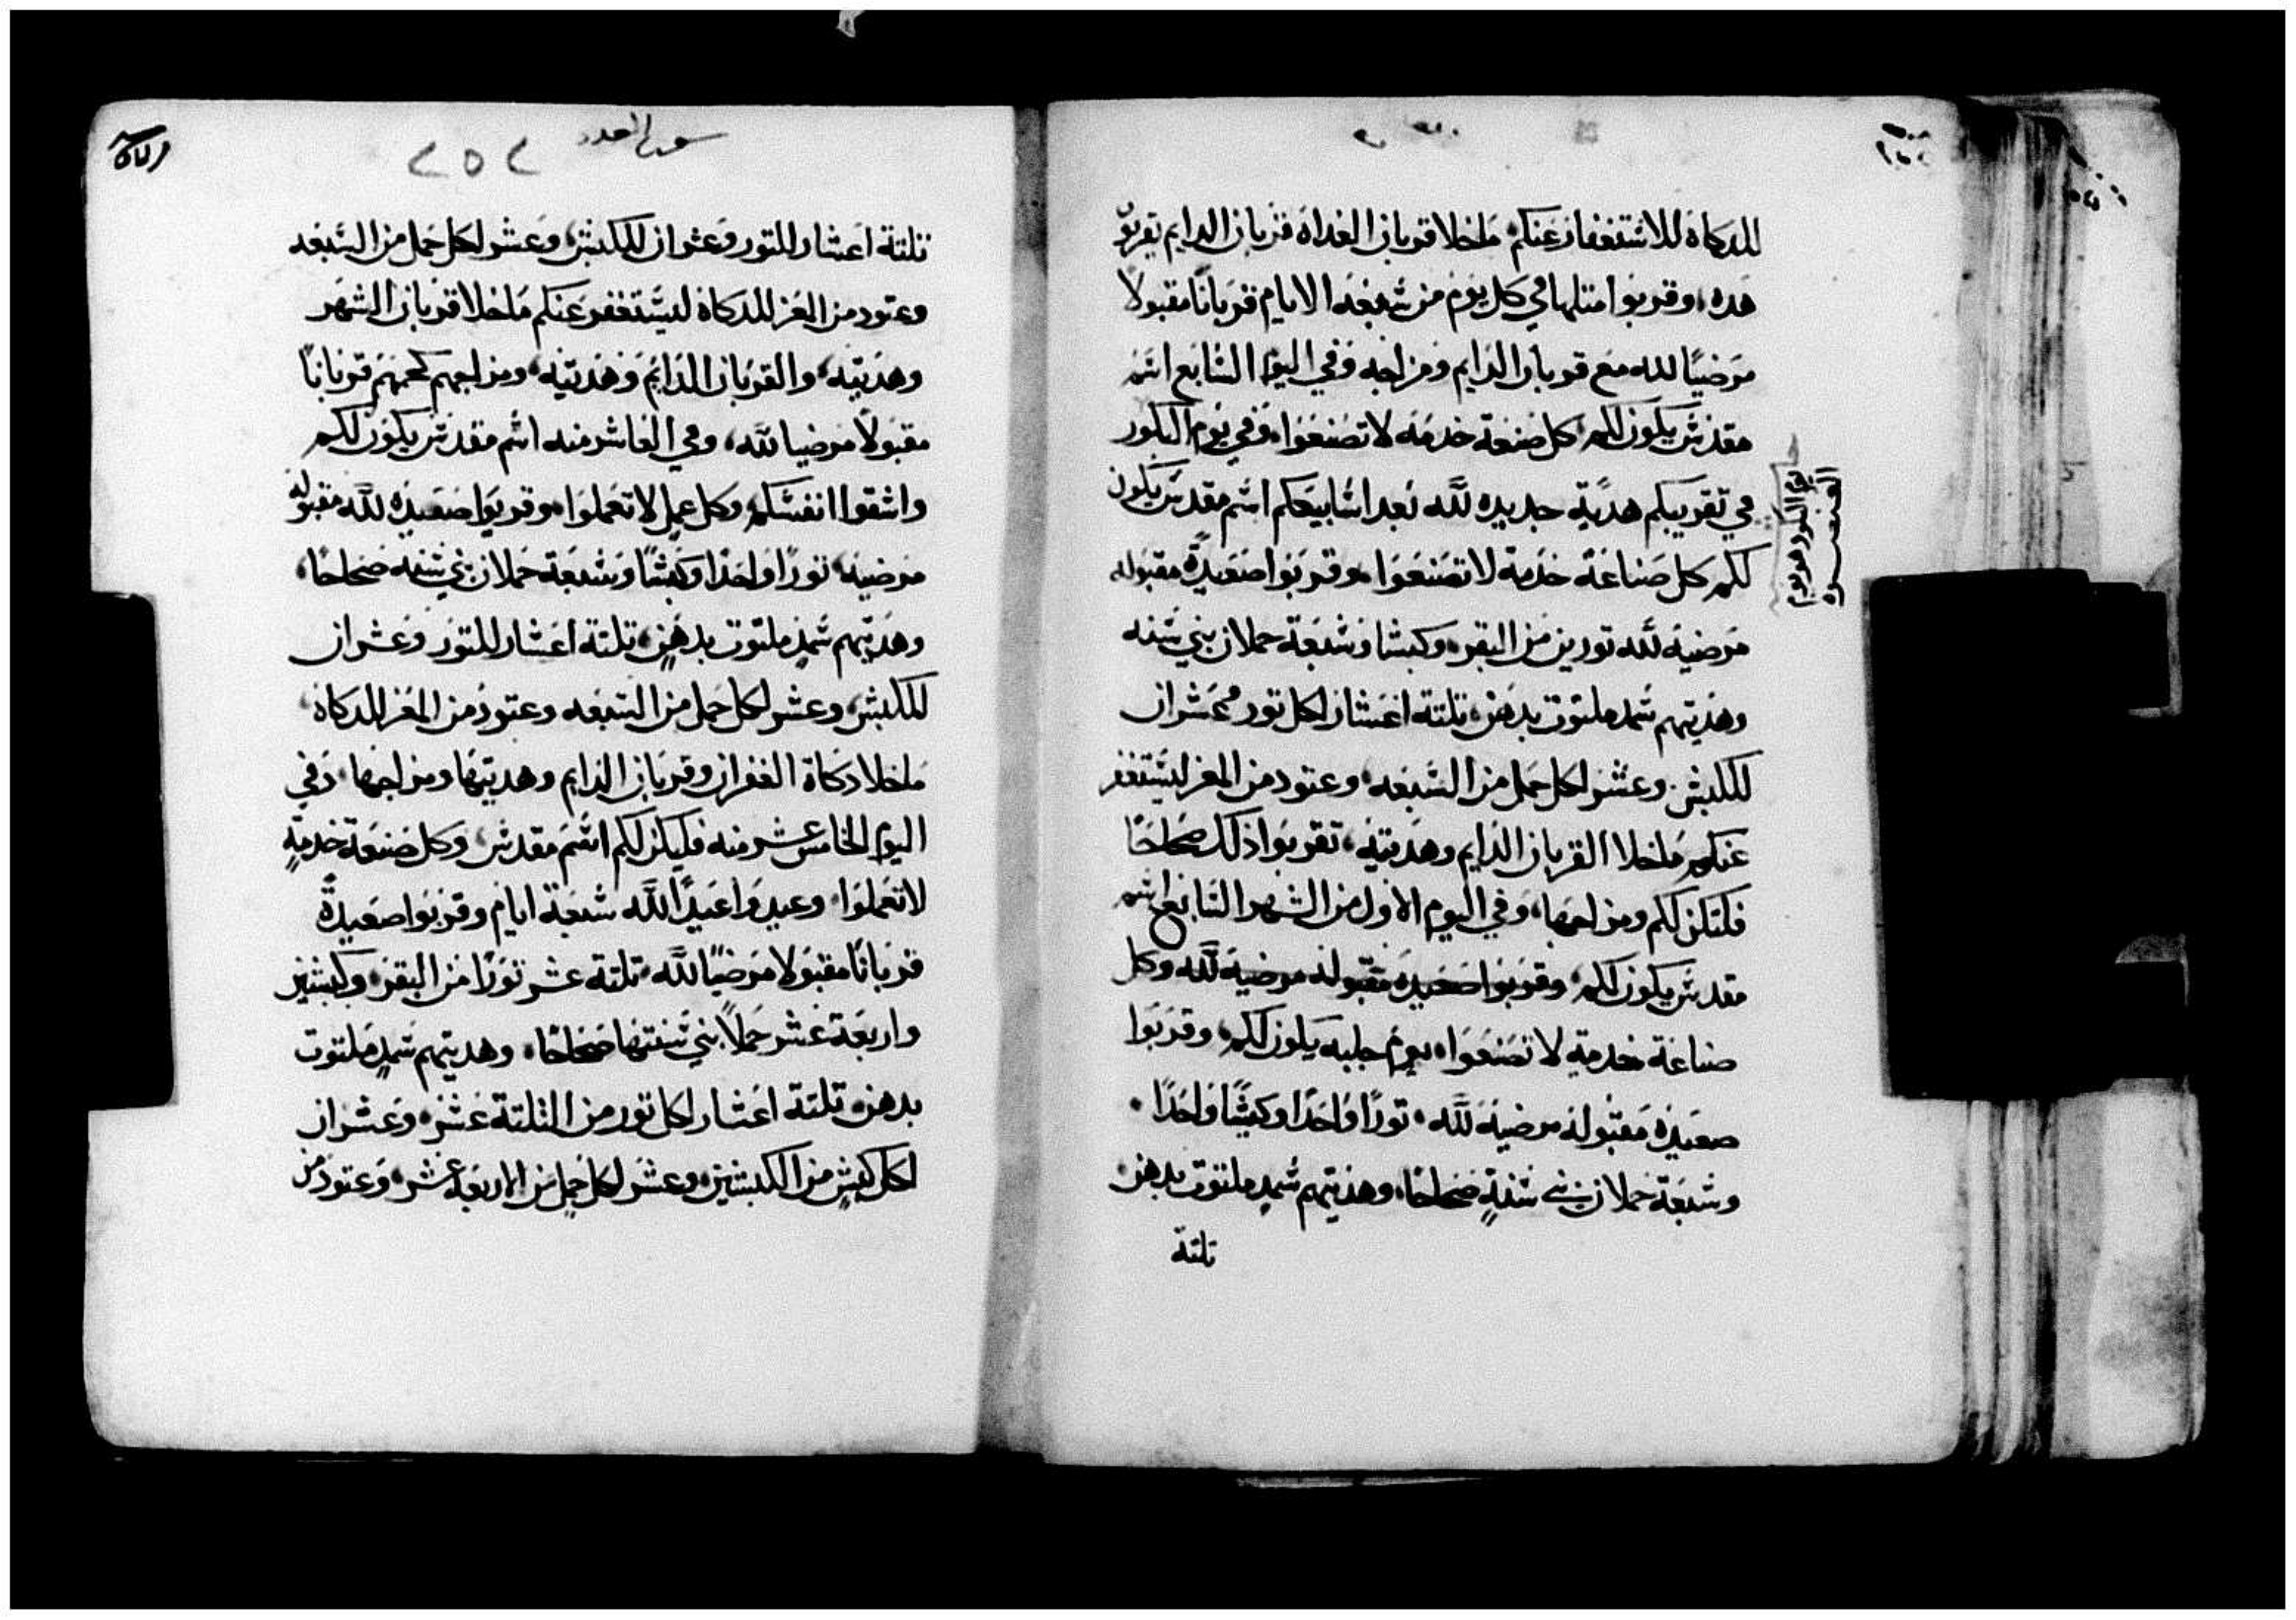 للدكاة للاستغفار عنكم ماخلا قربان الغداة قربان الدايم تقربو
هده وقربوا امتلها في كل يوم من سبعة الايام قربانا مقبولا
مرضيا لله مع قربان الدايم ومزاجه وفي اليوم السابع اسم
مقدس يكون لكم كل صنعة خدمه لا تصنعوا وفي يوم البكور
في تقريبكم هدية جديده لله بعد اسابيعكم اسم مقدس يكون
لكم كل صناعة خدمة لا تصنعوا وقربوا صعيدة مقبوله
مرضيه لله تورين من البقر وكبشا وسبعة حملان بني سنه
وهديتهم سمد ملتوت بدهن تلتة اعشار لكل تور وعشران
للكبش وعشر لكل حمل من السبعه وعتود من المعز ليستغفر
عنكم ماخلا القربان الدايم وهديته تقربوا ذلك صحاحا
فلتكن لكم ومزاجها وفي اليوم الاول من الشهر السابع اسم
مقدس يكون لكم وقربوا صعيدة مقبوله مرضيه لله وكل
صناعة خدمة لا تصنعوا يوم جلبه يكون لكم وقربوا
صعيده مقبوله مرضيه لله تورا واحدا وكبشا واحدا
وسبعة حملان بني سنة صحاحا وهديتهم سمد ملتوت بدهن
تلتة
العنصره
العدد
تلتة اعشار للتور وعشران للكبش وعشر لكل حمل من السبعه
وعتود من المعز للدكاة ليستغفر عنكم ماخلا قربان الشهر
وهديته والقربان الدايم وهديته ومزاجهم كحكمهم قربانا
مقبولا مرضيا لله وفي العاشر منه اسم مقدس يكون لكم
واشقوا انفسكم وكل عمل لا تعملوا وقربوا صعيده لله مقبوله
مرضيه تورا واحدا وكبشا وسبعة حملان بني سنه صحاحا
وهديتهم سمد ملتوت بدهن تلتة اعشار للتور وعشران
للكبش وعشر لكل حمل من السبعه وعتود من المعز للدكاة
ماخلا دكاة الغفران وقربان الدايم وهديتها ومزاجها وفي
اليوم الخامس عشر منه فليكن لكم اسم مقدس وكل صنعة خدمة
لا تعملوا وعيدوا عيدا لله سبعة ايام وقربوا صعيدة
قربانا مقبولا مرضيا لله تلتة عشر تورا من البقر وكبشين
واربعة عشر حملا بني سنتها صحاحا وهديتهم سمد ملتوت
بدهن تلتة اعشار لكل تور من التلتة عشر وعشران
لكل كبش من الكبشين وعشر لكل حمل من الاربعة عشر وعتود من